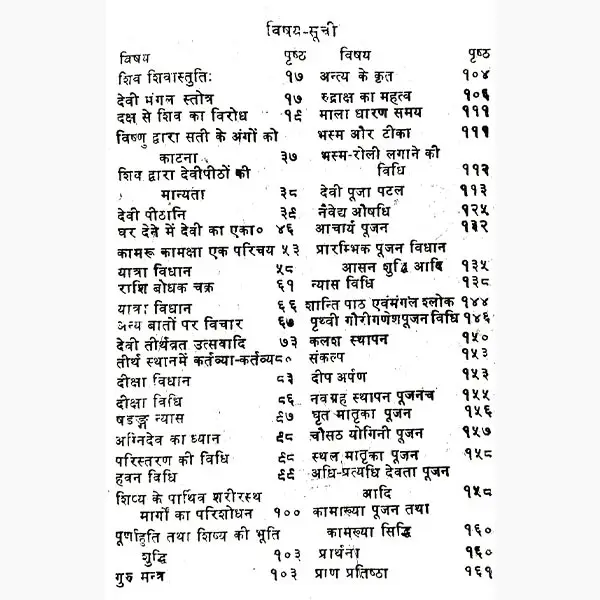 विषय-सूची
विषय पृष्ठ
शिव शिवास्तुतिः १७
देवी मंगल स्तोत्र १७
दक्ष से शिव का विरोध १९
विष्णु द्वारा सती के अंगों को
काटना ३७
शिव द्वारा देवीपीठों की
मान्यता ३८
देवी पीठानि ३९
घर देने में देवी का एका० ४६
कामरू कामक्षा एक परिचय ५३
यात्रा विधान ५८
राशि बोधक चक्र ६१
यात्रा विधान ६६
अन्य बातों पर विचार ६७
देवी तीर्थव्रत उत्सवादि ७३
तीर्थ स्थानमें कर्तव्या-कर्तव्य८०
दीक्षा विधान ८३
दीक्षा विधि ८६
षडङ्ग न्यास ९७
अग्निदेव का ध्यान ९८
परिस्तरण की विधि ९८
हवन विधि ९९
शिष्य के पार्थिव शरीरस्थ
मार्गों का परिशोधन १००
पूर्णाहुति तथा शिष्य की भूति
शुद्धि १०३
गुरु मन्त्र १०३
विषय पृष्ठ
अन्त्य के कृत १०४
रुद्राक्ष का महत्व १०६
माला धारण समय १११
भस्म और टीका १११
भस्म-रोली लगाने की
विधि ११२
देवी पूजा पटल ११३
नैवेद्य औषधि १२५
आचार्य पूजन १३२
प्रारम्भिक पूजन विधान
आसन शुद्धि आदि १३५
न्यास विधि १३८
शान्ति पाठ एवंमंगल श्लोक १४४
पृथ्वी गौरीगणेशपूजन विधि १४६
कलश स्थापन १५०
संकल्प १५३
दीप अर्पण १५३
नवग्रह स्थापन पूजनंच १५५
घृत मातृका पूजन १५६
चौसठ योगिनी पूजन १५७
स्थल मातृका पूजन १५८
अधि-प्रत्यधि देवता पूजन
आदि १५८
कामाख्या पूजन तथा
कामख्या सिद्धि १६०
प्रार्थना १६०
प्राण प्रतिष्ठा १६१